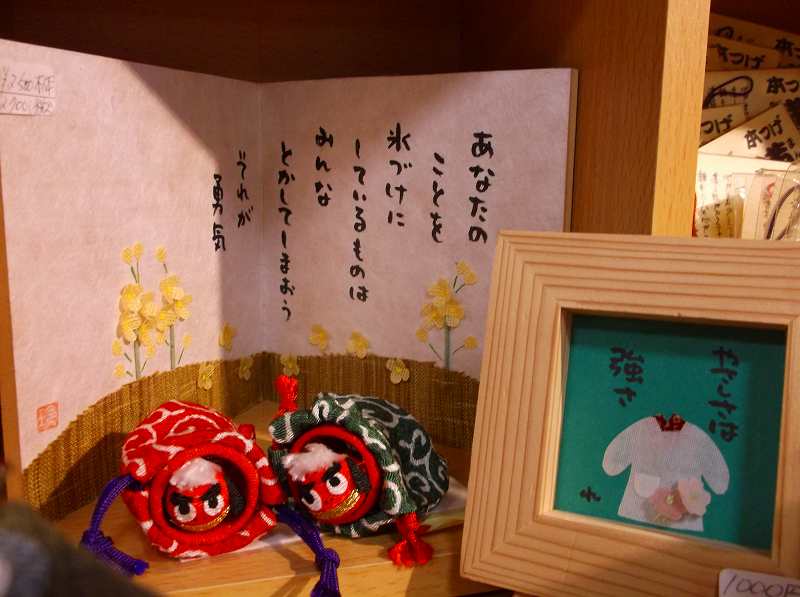 あなたの
ことを
氷づけに
しているものは
みんな
とかしてしまおう
それが
勇気
やさしさは
強さ
1000円
本つげ
本つげ
本つげ